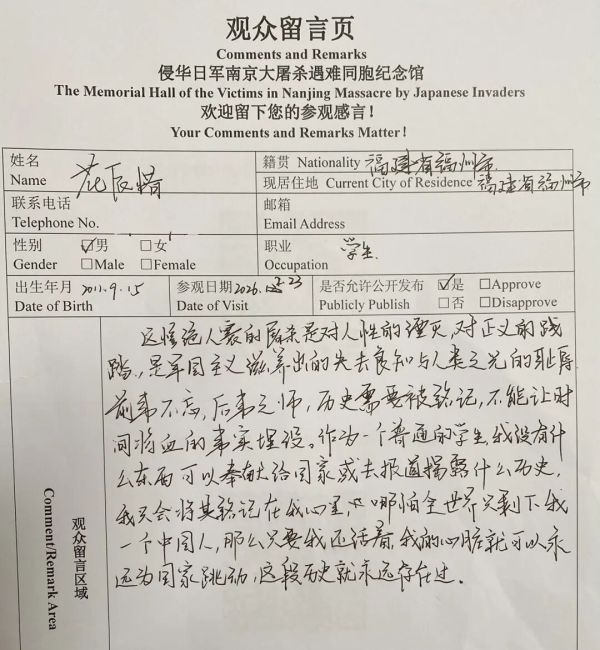 观众留言页
Comments and Remarks
侵华日军南京大屠杀遇难同胞纪念馆
The Memorial Hall of the Victims in Nanjing Massacre by Japanese Invaders
欢迎留下您的参观感言！
Your Comments and Remarks Matter!
姓名
Name
范辰惜
籍贯 Nationality 福建省福州市
现居住地 Current City of Residence 福建省福州市
联系电话
Telephone No.
邮箱
Email Address
性别 ☑男 □女
Gender □Male □Female
职业 学生
Occupation
出生年月 2011.9.15
Date of Birth
参观日期 2026. 2.23
Date of Visit
是否允许公开发布 ☑是 □Approve
Publicly Publish □否 □Disapprove
观众留言区域
Comment/Remark Area
这惨绝人寰的屠杀是对人性的湮灭，对正义的践
踏，是军国主义滋养出的失去良知与人类之光的耻辱
前事不忘，后事之师，历史需要被铭记，不能让时
间将血的事实埋没。作为一个普通的学生，我没有什
么东西可以奉献给国家或去报道揭露什么历史，
我只会将其铭记在我心里，哪怕全世界只剩下我
一个中国人，那么只要我还活着，我的心脏就可以永
远为国家跳动，这段历史就永远存在过.